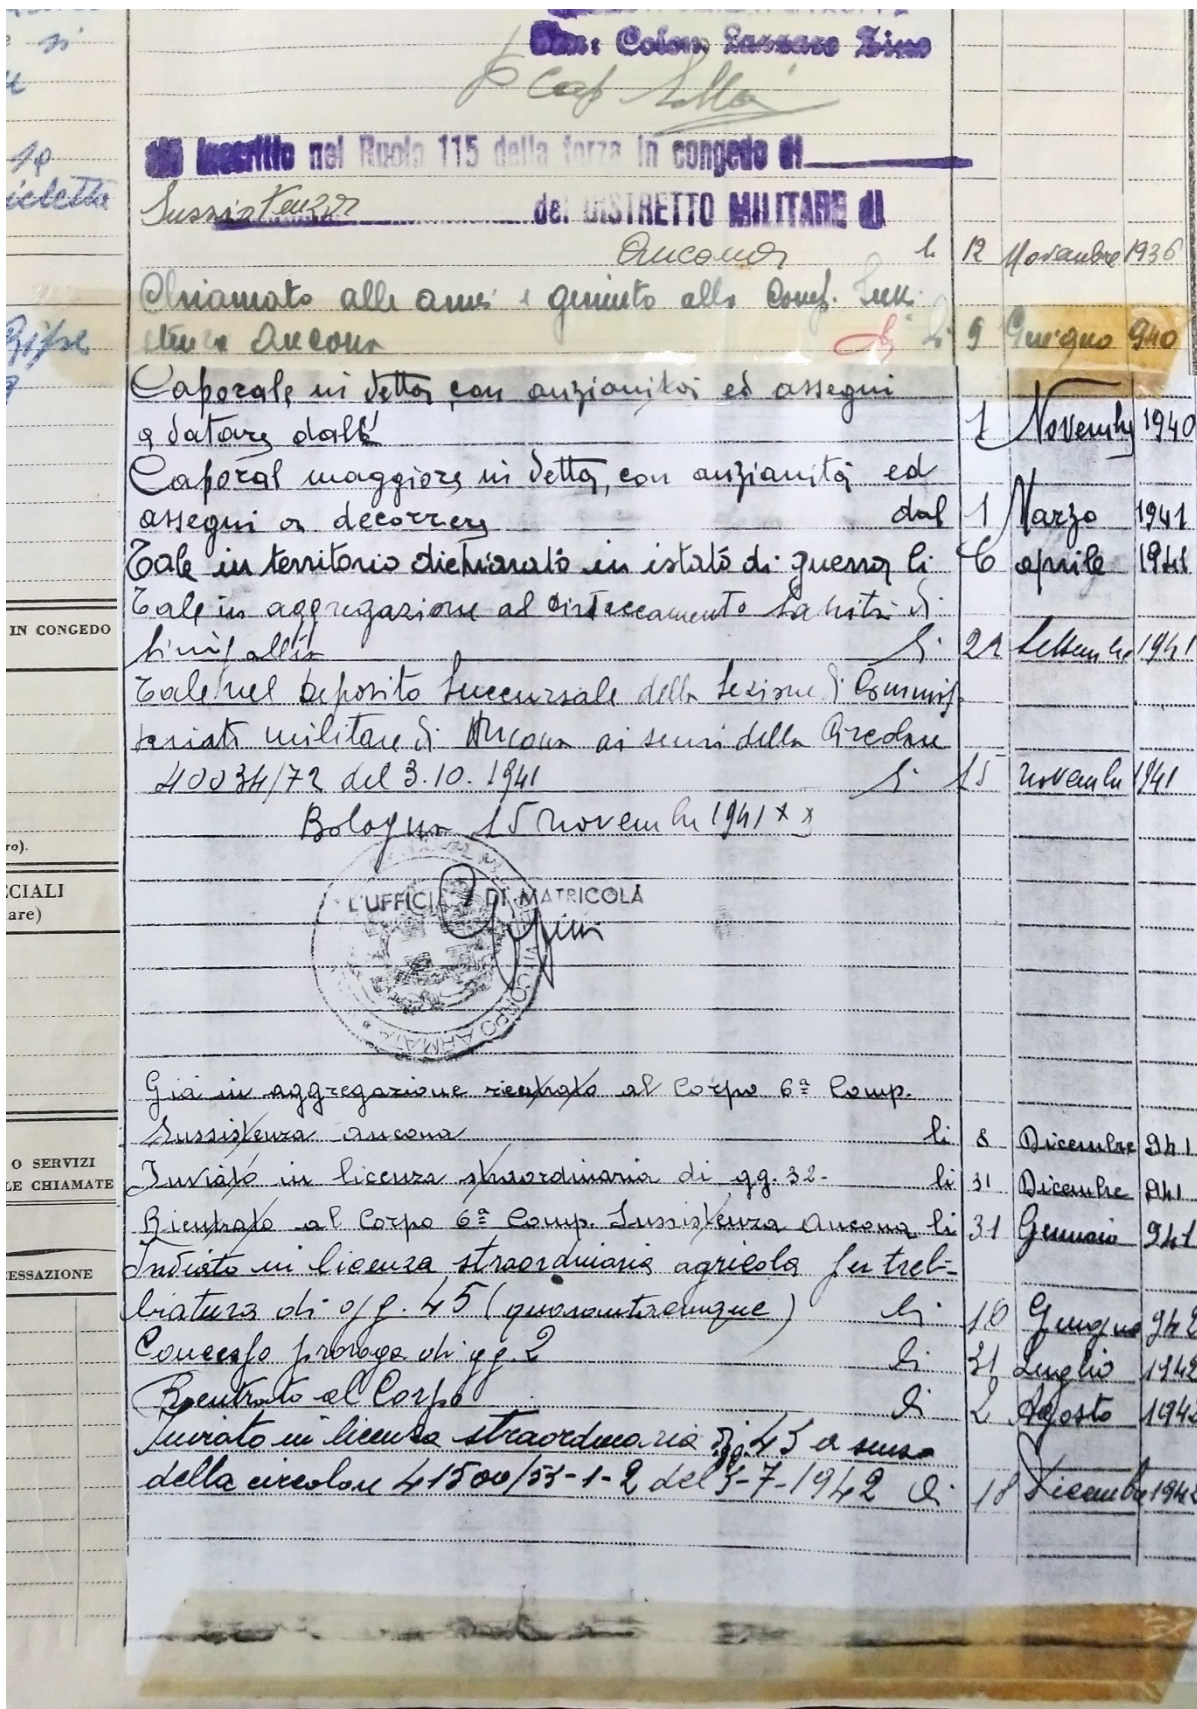 si
Colonn Lazzaro Zino
Cap
già inscritto nel Ruolo 115 della forza in congedo di
Sussistenza del DISTRETTO MILITARE di
Ancona li 12 Novembre 1936
icletta
Chiamato alle armi e giunto alla Comp. Sussi
stenza Ancona li 9 Giugno 940
Caporale in detta con anzianità ed assegni
a datare dall' 1 Novembre 1940
Caporal maggiore in detta, con anzianità ed
assegni a decorrere dal 1 Marzo 1941
Tale in territorio dichiarato in istato di guerra li 6 aprile 1941
Tale in aggregazione al Distaccamento Sanità di
IN CONGEDO
Sinigallia li 22 Settembre 1941
Tale nel Deposito Succursale della Sezione di Commis
sariato militare di Ancona ai sensi della Circolare
40034/72 del 3.10.1941 li 15 novembre 1941
Bologna 15 novembre 1941 XX
ro).
ECIALI
are)
L'UFFICIALE DI MATRICOLA
VI CORPO ARMATA
Già in aggregazione rientrato al Corpo 6ª Comp.
Sussistenza Ancona li 8 Dicembre 941
O SERVIZI
LE CHIAMATE
Inviato in licenza straordinaria di gg. 32- li 31 Dicembre 941
Rientrato al Corpo 6ª Comp. Sussistenza Ancona li 31 Gennaio 941
Inviato in licenza straordinaria agricola per treb-
CESSAZIONE
biatura di gg. 45 (quarantacinque) li 16 Giugno 942
Concessa proroga di gg. 2 li 31 Luglio 1942
Rientrato al Corpo li 2 Agosto 1942
Inviato in licenza straordinaria di gg. 45 a senso
della circolare 41500/53-1-2 del 5-7-1942 li 18 Dicembre 1942